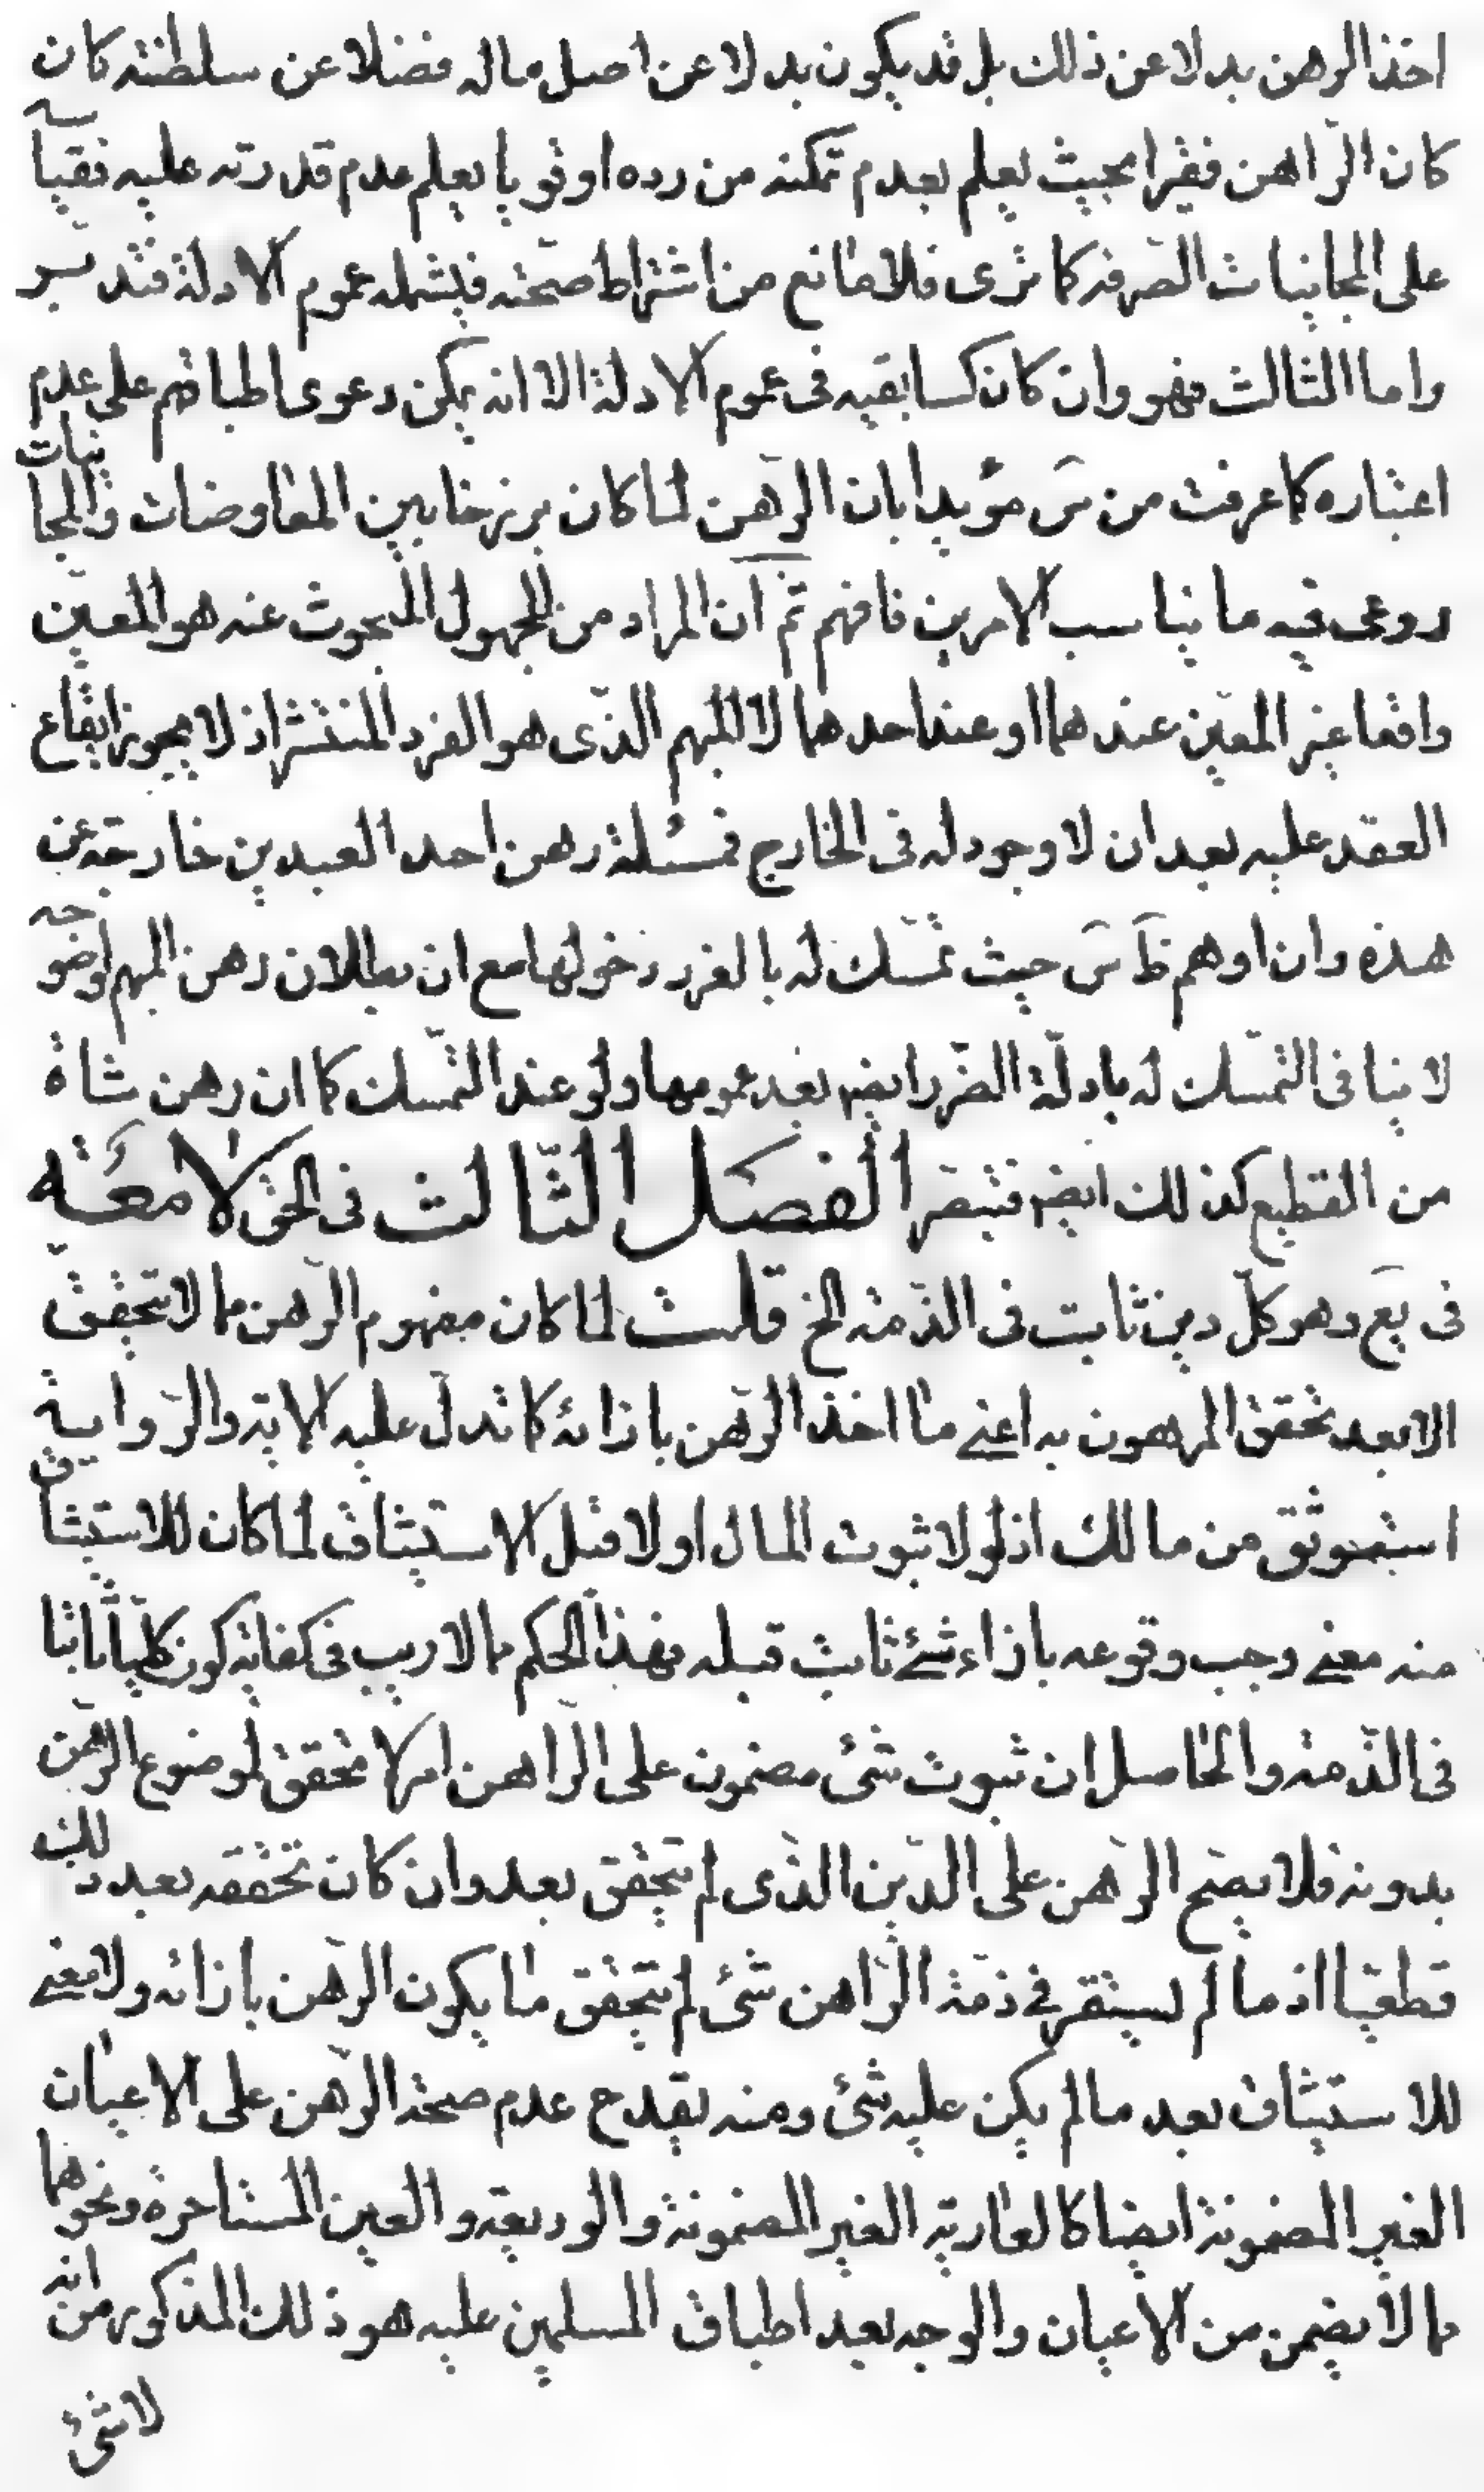 اخذ الرهن بدلا عن ذلك بل قد يكون بدلا عن اصل ماله فضلا عن سلطنته كان
كان الرّاهن فقيرا بحيث يعلم بعدم تمكنه من رده او قويا يعلم عدم قدرته عليه فقياسه
على المجانيات الصّرفه كما ترى فلا مانع من اشتراط صحّته فيشمله عموم الادلة فتدبر
واما الثالث فهو وان كان كسابقيه فى عموم الادلة الا انه يمكن دعوى اطباقهم على عدم
اعتباره كما عرفت من سَ مؤيدا بان الرّهن لما كان برزخا بين المعاوضات والمجانيات
روعى فيه ما يناسب الامرين فافهم ثم ان المراد من المجهول المبحوث عنه هو المعيّن
واقعا غير المعيّن عندهما او عند احدهما لا المبهم الذّى هو الفرد المنتشر اذ لا يجوز ايقاع
العقد عليه بعد ان لا وجود له فى الخارج فمسئلة رهن احد العبدين خارجة عن
هذه وان اوهم ظَ سَ حيث تمسّك له بالغرر دخولها مع ان بطلان رهن المبهم لوضوحه
لا ينافى التمسّك له بادلّة الضّرر ايضه بعد عمومها ولو عند التمسك كما ان رهن شاة
من القطيع كذلك ايضه فتبصّر الفصل الثّالث فى الحق لامعَة
فى يَع وهو كلّ دين ثابت فى الذّمة الخ قلت لما كان مفهوم الرّهن مما لا يتحقّق
الا بعد تحقق المرهون به اعنے ما اخذ الرّهن بازائه كما تدلّ عليه الاية والرّواية
استوثق من مالك اذ لو لا ثبوت المال اولا قبل الاستيثاق لما كان للاستيثاق
منه معنے وجب وقوعه بازاء شئ ثابت قبله فهذا الحكم مما لا ريب فى كفاية كون كليا ثابتا
فى الذّمة والحاصل ان ثبوت شئ مضمون على الرّاهن امر لا محقق لموضوع الرّهن
بدونه فلا يصّح الرّهن على الدّين الذّى لم يتحقق بعد وان كان تحققه بعد ذلك
قطعيا اذ ما لم يستقر فے ذمّة الرّاهن شئ لم يتحقق ما يكون الرّهن بازائه ولا معنے
للاستيثاق بعد ما لم يكن عليه شئ ومنه يقدح عدم صحة الرّهن على الاعيان
الغير المضمونة ايضا كالعارية الغير المضمونة والوديعة والعين المستاجرة ونحوهما
مما لا يضمن من الاعيان والوجه بعد اطباق المسلمين عليه هو ذلك المذكور من انه
لا شئ